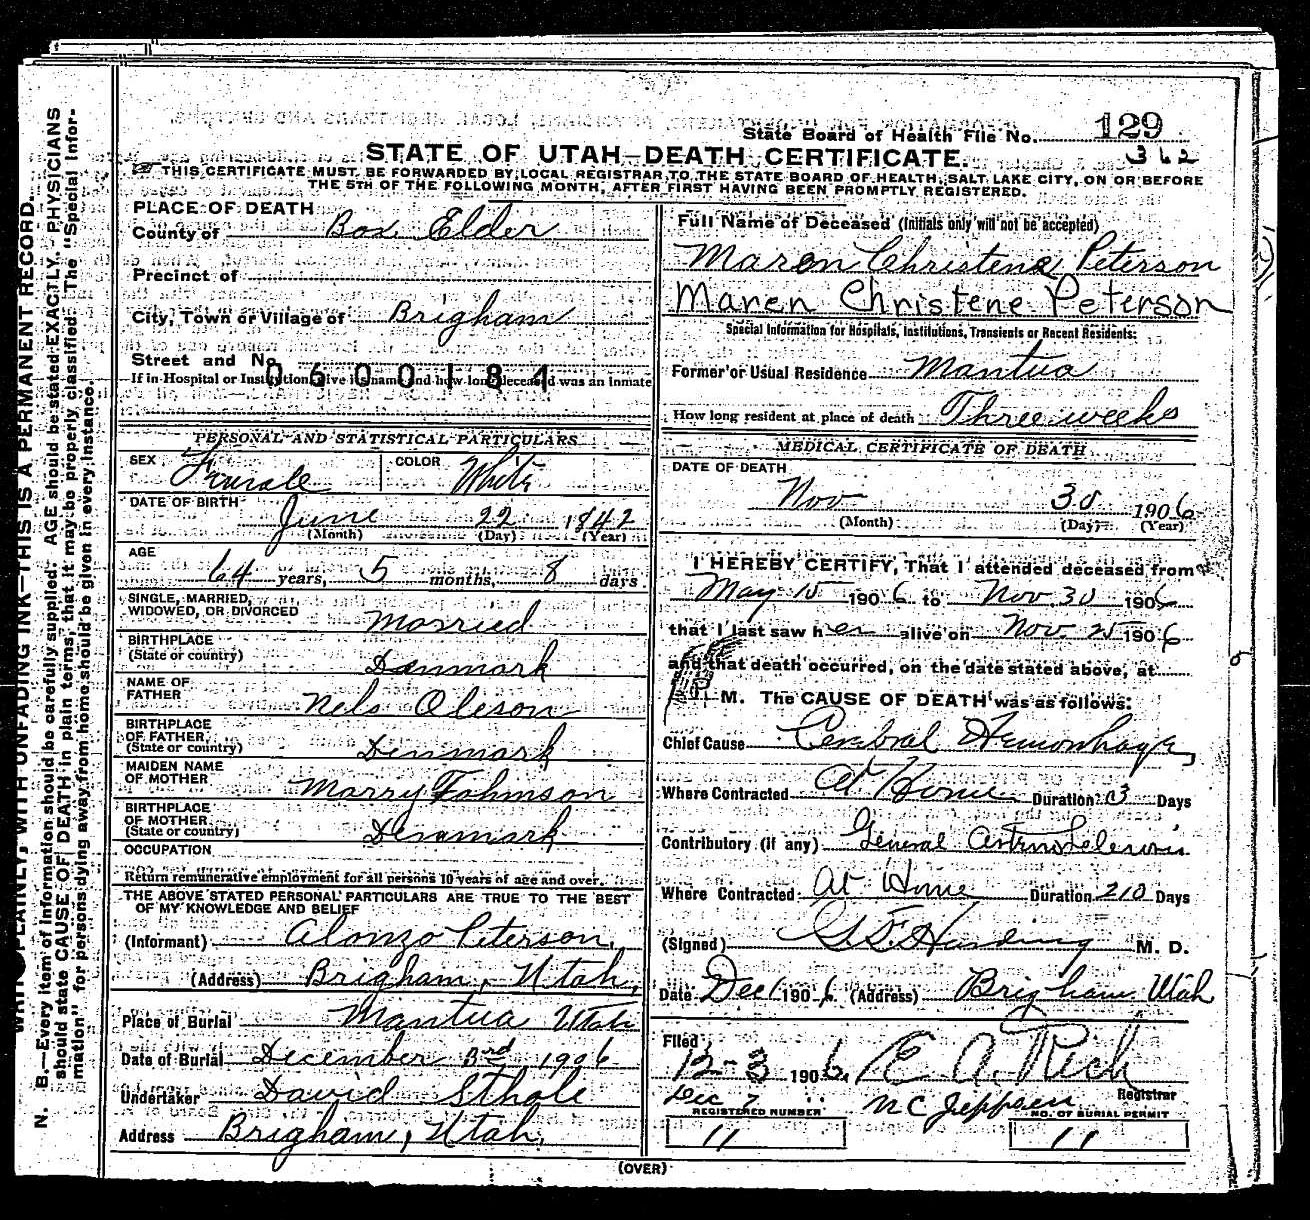 State Board of Health File No. 129
362
STATE OF UTAH—DEATH CERTIFICATE.
THIS CERTIFICATE MUST BE FORWARDED BY LOCAL REGISTRAR TO THE STATE BOARD OF HEALTH, SALT LAKE CITY, ON OR BEFORE
THE 5TH OF THE FOLLOWING MONTH, AFTER FIRST HAVING BEEN PROMPTLY REGISTERED.
PLACE OF DEATH
County of Box Elder
Precinct of
City, Town or Village of Brigham
Street and No.
0600184
If in Hospital or Institution give its name and how long deceased was an inmate
PERSONAL AND STATISTICAL PARTICULARS
SEX Female COLOR White
DATE OF BIRTH
June 22 1842
(Month) (Day) (Year)
AGE
64 years, 5 months, 8 days
SINGLE, MARRIED,
WIDOWED, OR DIVORCED Married
BIRTHPLACE
(State or country) Danmark
NAME OF
FATHER Nels Oleson
BIRTHPLACE
OF FATHER
(State or country) Denmark
MAIDEN NAME
OF MOTHER Marry Johnson
BIRTHPLACE
OF MOTHER
(State or country) Denmark
OCCUPATION
Return remunerative employment for all persons 10 years of age and over.
THE ABOVE STATED PERSONAL PARTICULARS ARE TRUE TO THE BEST
OF MY KNOWLEDGE AND BELIEF
(Informant) Alonzo Peterson,
(Address) Brigham, Utah,
Place of Burial Mantua Utah
Date of Burial December 3rd 1906
Undertaker David Sthole
Address Brigham, Utah,
Full Name of Deceased (initials only will not be accepted)
Maren Christene Peterson
Maren Christene Peterson
Special Information for Hospitals, Institutions, Transients or Recent Residents:
Former or Usual Residence Mantua
How long resident at place of death Three weeks
MEDICAL CERTIFICATE OF DEATH
DATE OF DEATH
Nov 30 1906
(Month) (Day) (Year)
I HEREBY CERTIFY, That I attended deceased from
May 15 1906 to Nov 30 1906
that I last saw her alive on Nov 25 1906
and that death occurred, on the date stated above, at
M. The CAUSE OF DEATH was as follows:
Chief Cause Cerebral Hemorrhage,
Where Contracted At Home Duration 13 Days
Contributory (if any) General
Where Contracted At Home Duration 210 Days
(Signed) Harding M. D.
Date Dec 1 1906 (Address) Brigham Utah
Filed
12-3 1906, E. A. Rich
Registrar
Dec 7 " N C Jeppsen
REGISTERED NUMBER NO. OF BURIAL PERMIT
11 11
(OVER)
PLAINLY, WITH UNFADING INK—THIS IS A PERMANENT RECORD.
N. B.—Every item of information should be carefully supplied. AGE should be stated EXACTLY. PHYSICIANS
should state CAUSE OF DEATH in plain terms, that it may be properly classified. The "Special Infor-
mation" for persons dying away from home should be given in every instance.